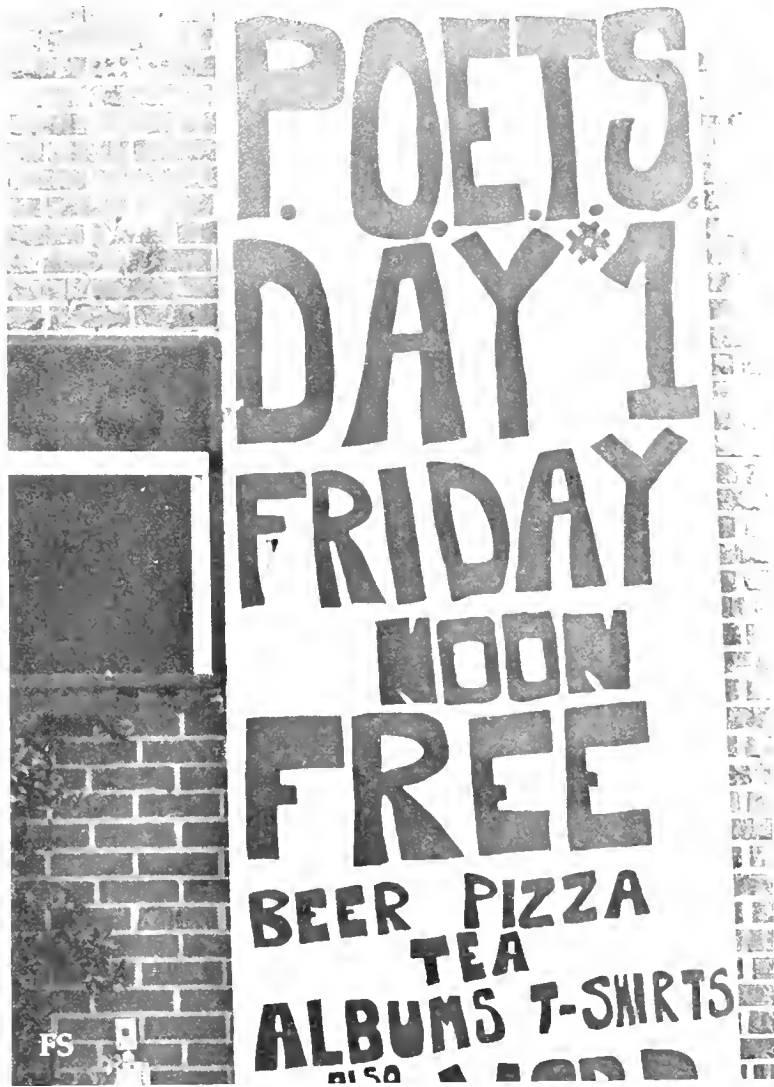 P.O.E.T.S.
DAY*1
FRIDAY
NOON
FREE
BEER PIZZA
TEA
ALBUMS T-SHIRTS
ALSO
FS